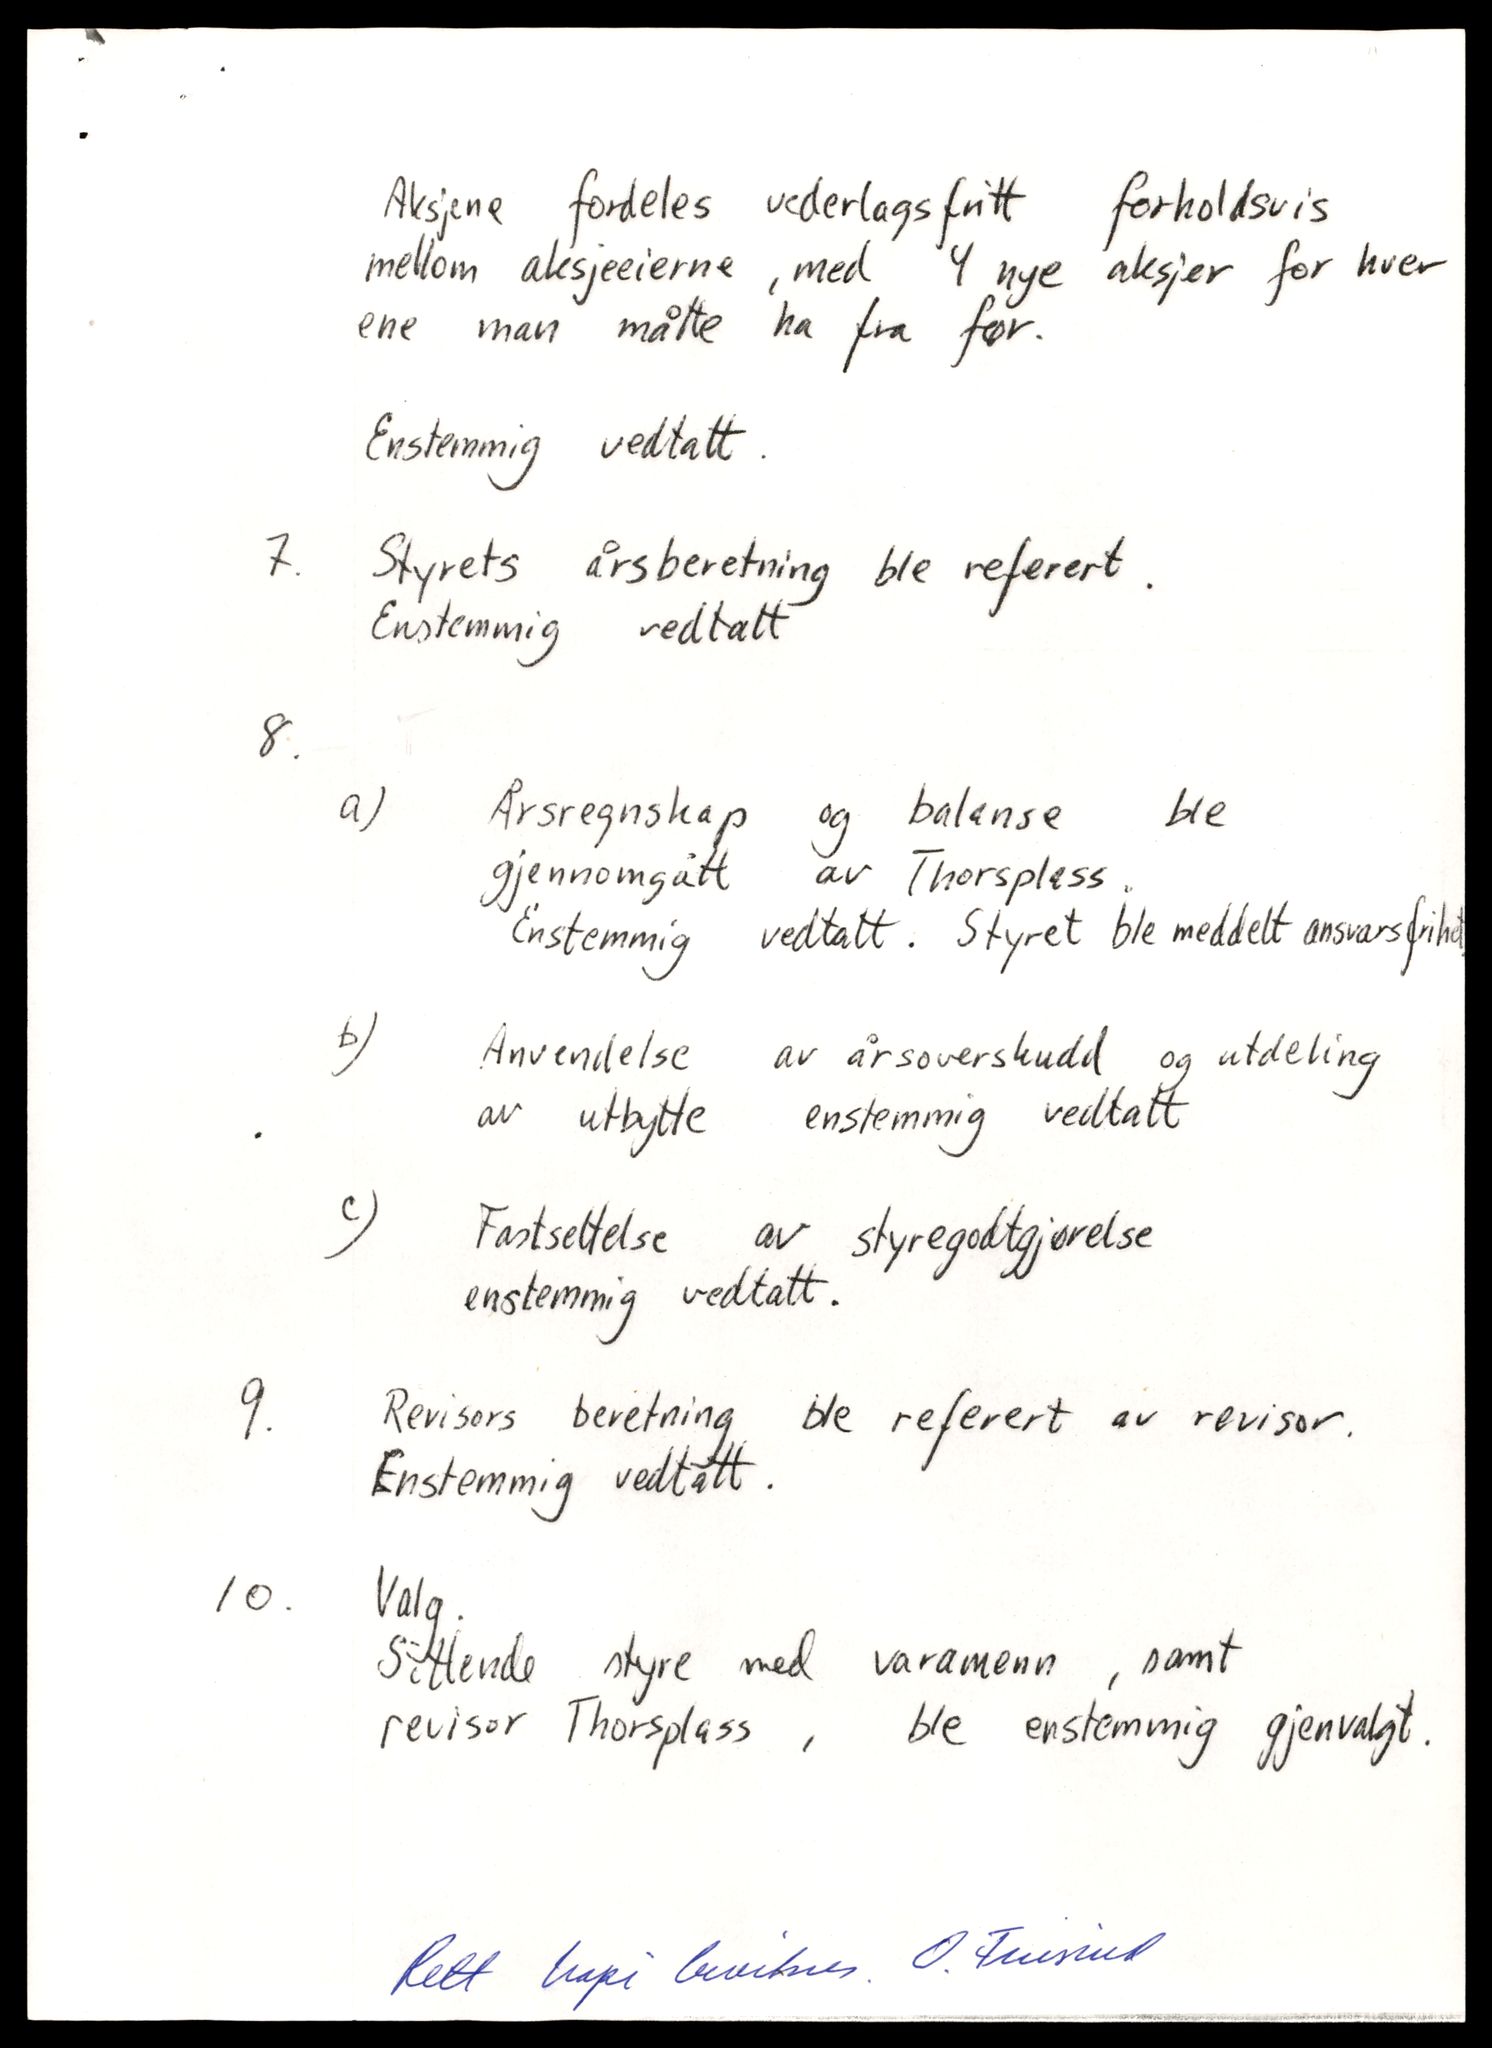 Aksjene fordeles vederlagsfritt forholdsvis
mellom aksjeeierne, med 4 nye aksjer for hver
ene man måtte ha fra før.
Enstemmig vedtatt.
7. Styrets årsberetning ble referert.
Enstemmig vedtatt
8.
a) Årsregnskap og balanse ble
gjennomgått av Thorsplass.
Enstemmig vedtatt. Styret ble meddelt ansvarsfrihet
b) Anvendelse av årsoverskudd og utdeling
av utbytte enstemmig vedtatt
c) Fastsettelse av styregodtgjørelse
enstemmig vedtatt.
9. Revisors beretning ble referert av revisor.
Enstemmig vedtatt.
10. Valg.
Sittende styre med varamenn, samt
revisor Thorsplass, ble enstemmig gjenvalgt.
Rett kopi bevitnes. O.